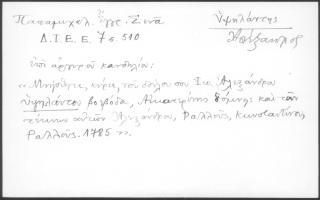 Παπαμιχαλ. ἔγγρ. Σινᾶ
Δ.Ι.Ε.Ε. 7 σ. 510
Ὑψηλάντης
Ἀλέξανδρος
ἐπὶ ἀργυροῦ κανδηλίου:
«Μνήσθητι, κύριε, τοῦ δούλου σου Ἰω. Ἀλεξάνδρου
Ὑψηλάντου βοεβόδα, Αἰκατερίνης δόμνης καὶ τῶν
τέκνων αὐτῶν Ἀλεξάνδρου, Ραλλοῦς, Κωνσταντίνου,
Ραλλοῦς. 1785».